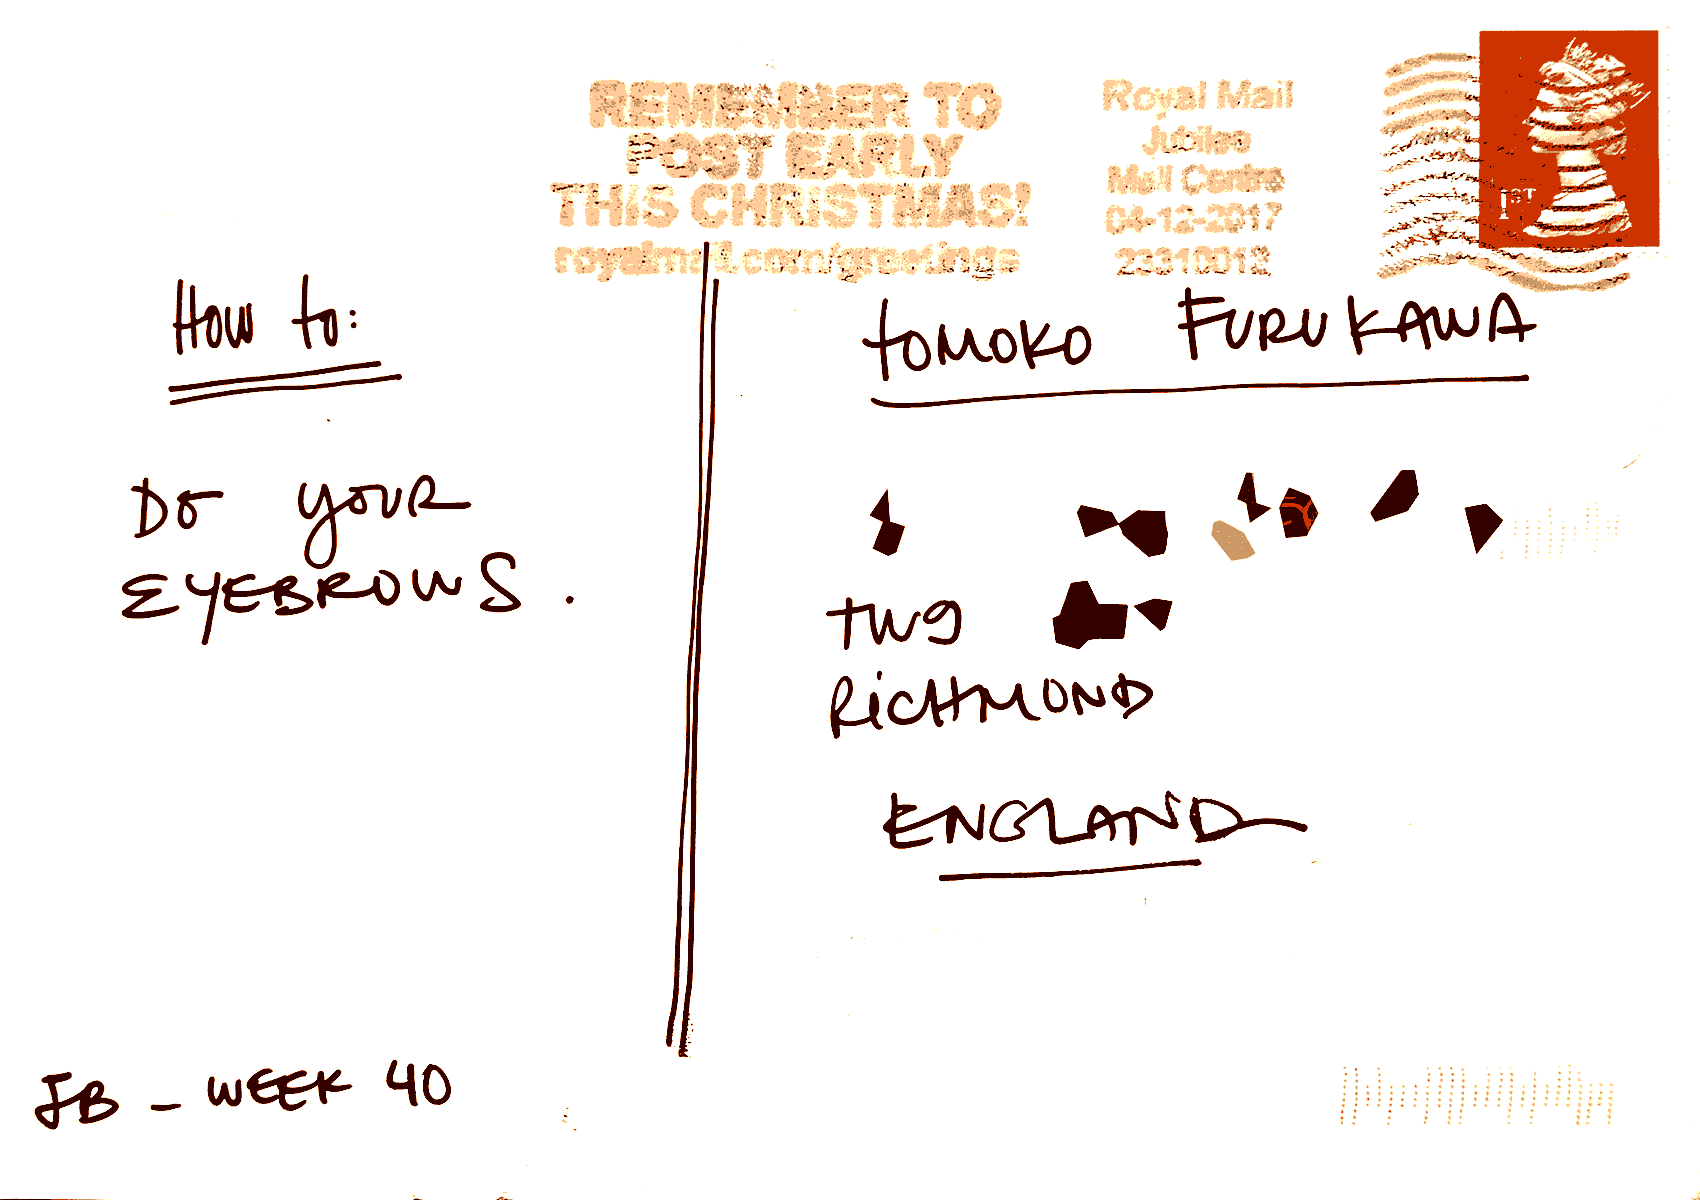 REMEMBER TO
POST EARLY
THIS CHRISTMAS!
royalmail.com/greetings
Royal Mail
Jubilee
Mail Centre
04-12-2017
23310012
1ST
How to:
DO YOUR
EYEBROWS.
JB - WEEK 40
TOMOKO FURUKAWA
TW9
RICHMOND
ENGLAND